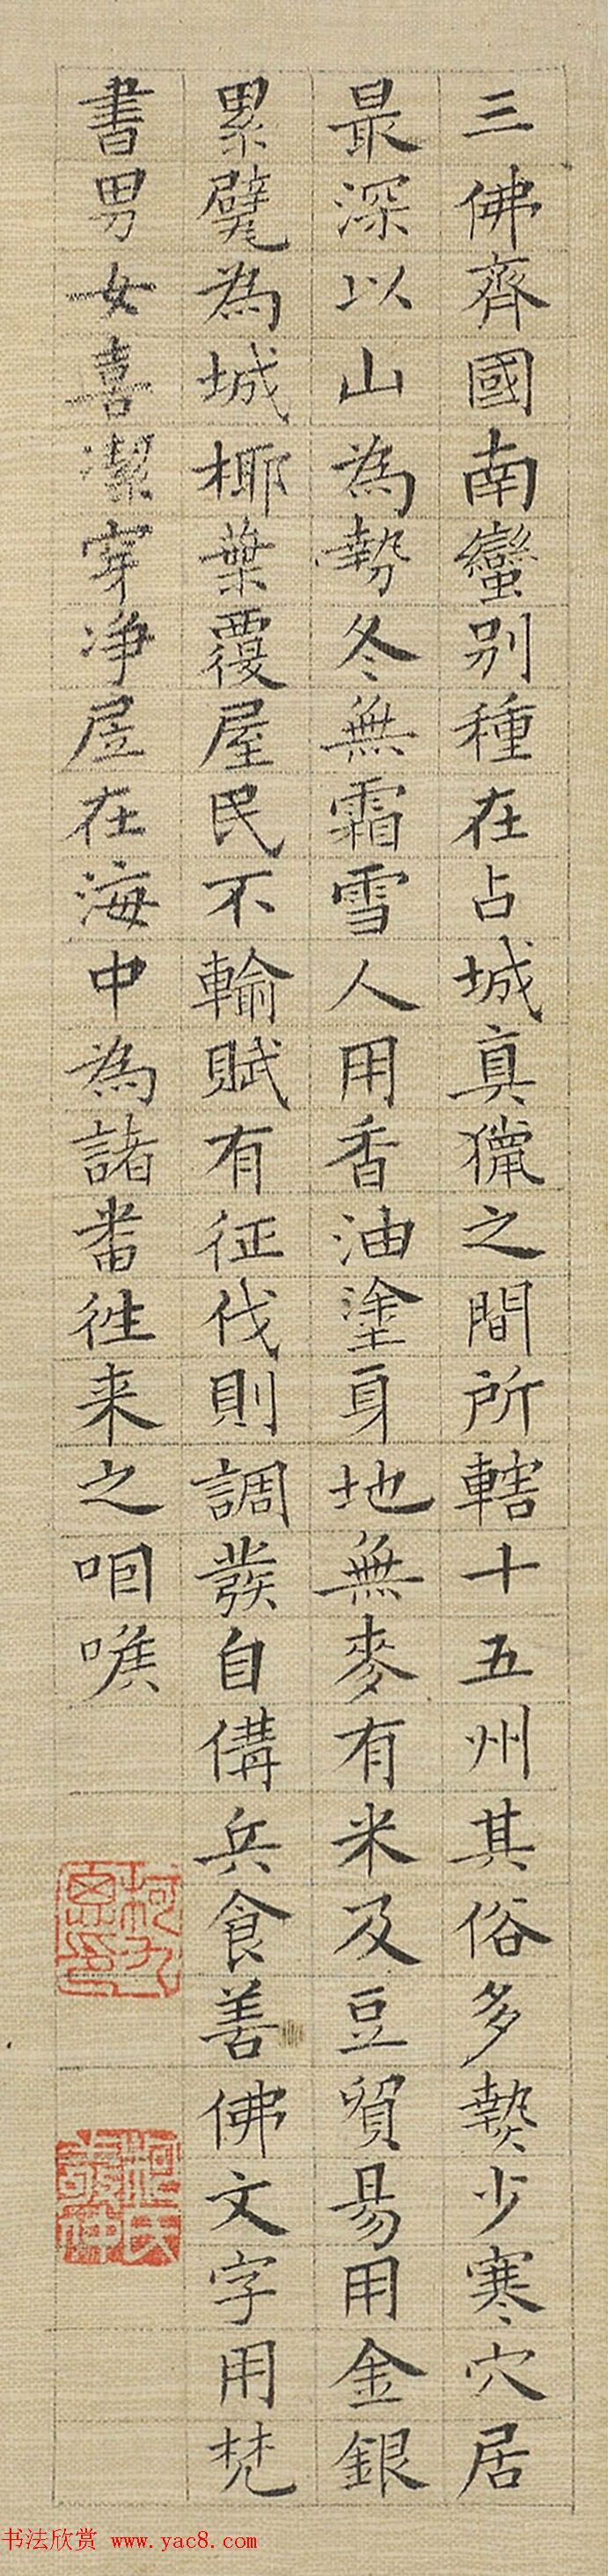 三佛齊國南蠻別種在占城真獵之間所轄十五州其俗多㷍少寒穴居
最深以山為勢冬無霜雪人用香油塗身地無麥有米及豆貿易用金銀
累甓為城椰葉覆屋民不輸賦有征伐則調發自俻兵食善佛文字用梵
書男女喜潔穿净居在海中為諸番往来之咽喉
柯九思印
柯氏敬仲
书法欣赏 www.yac8.com